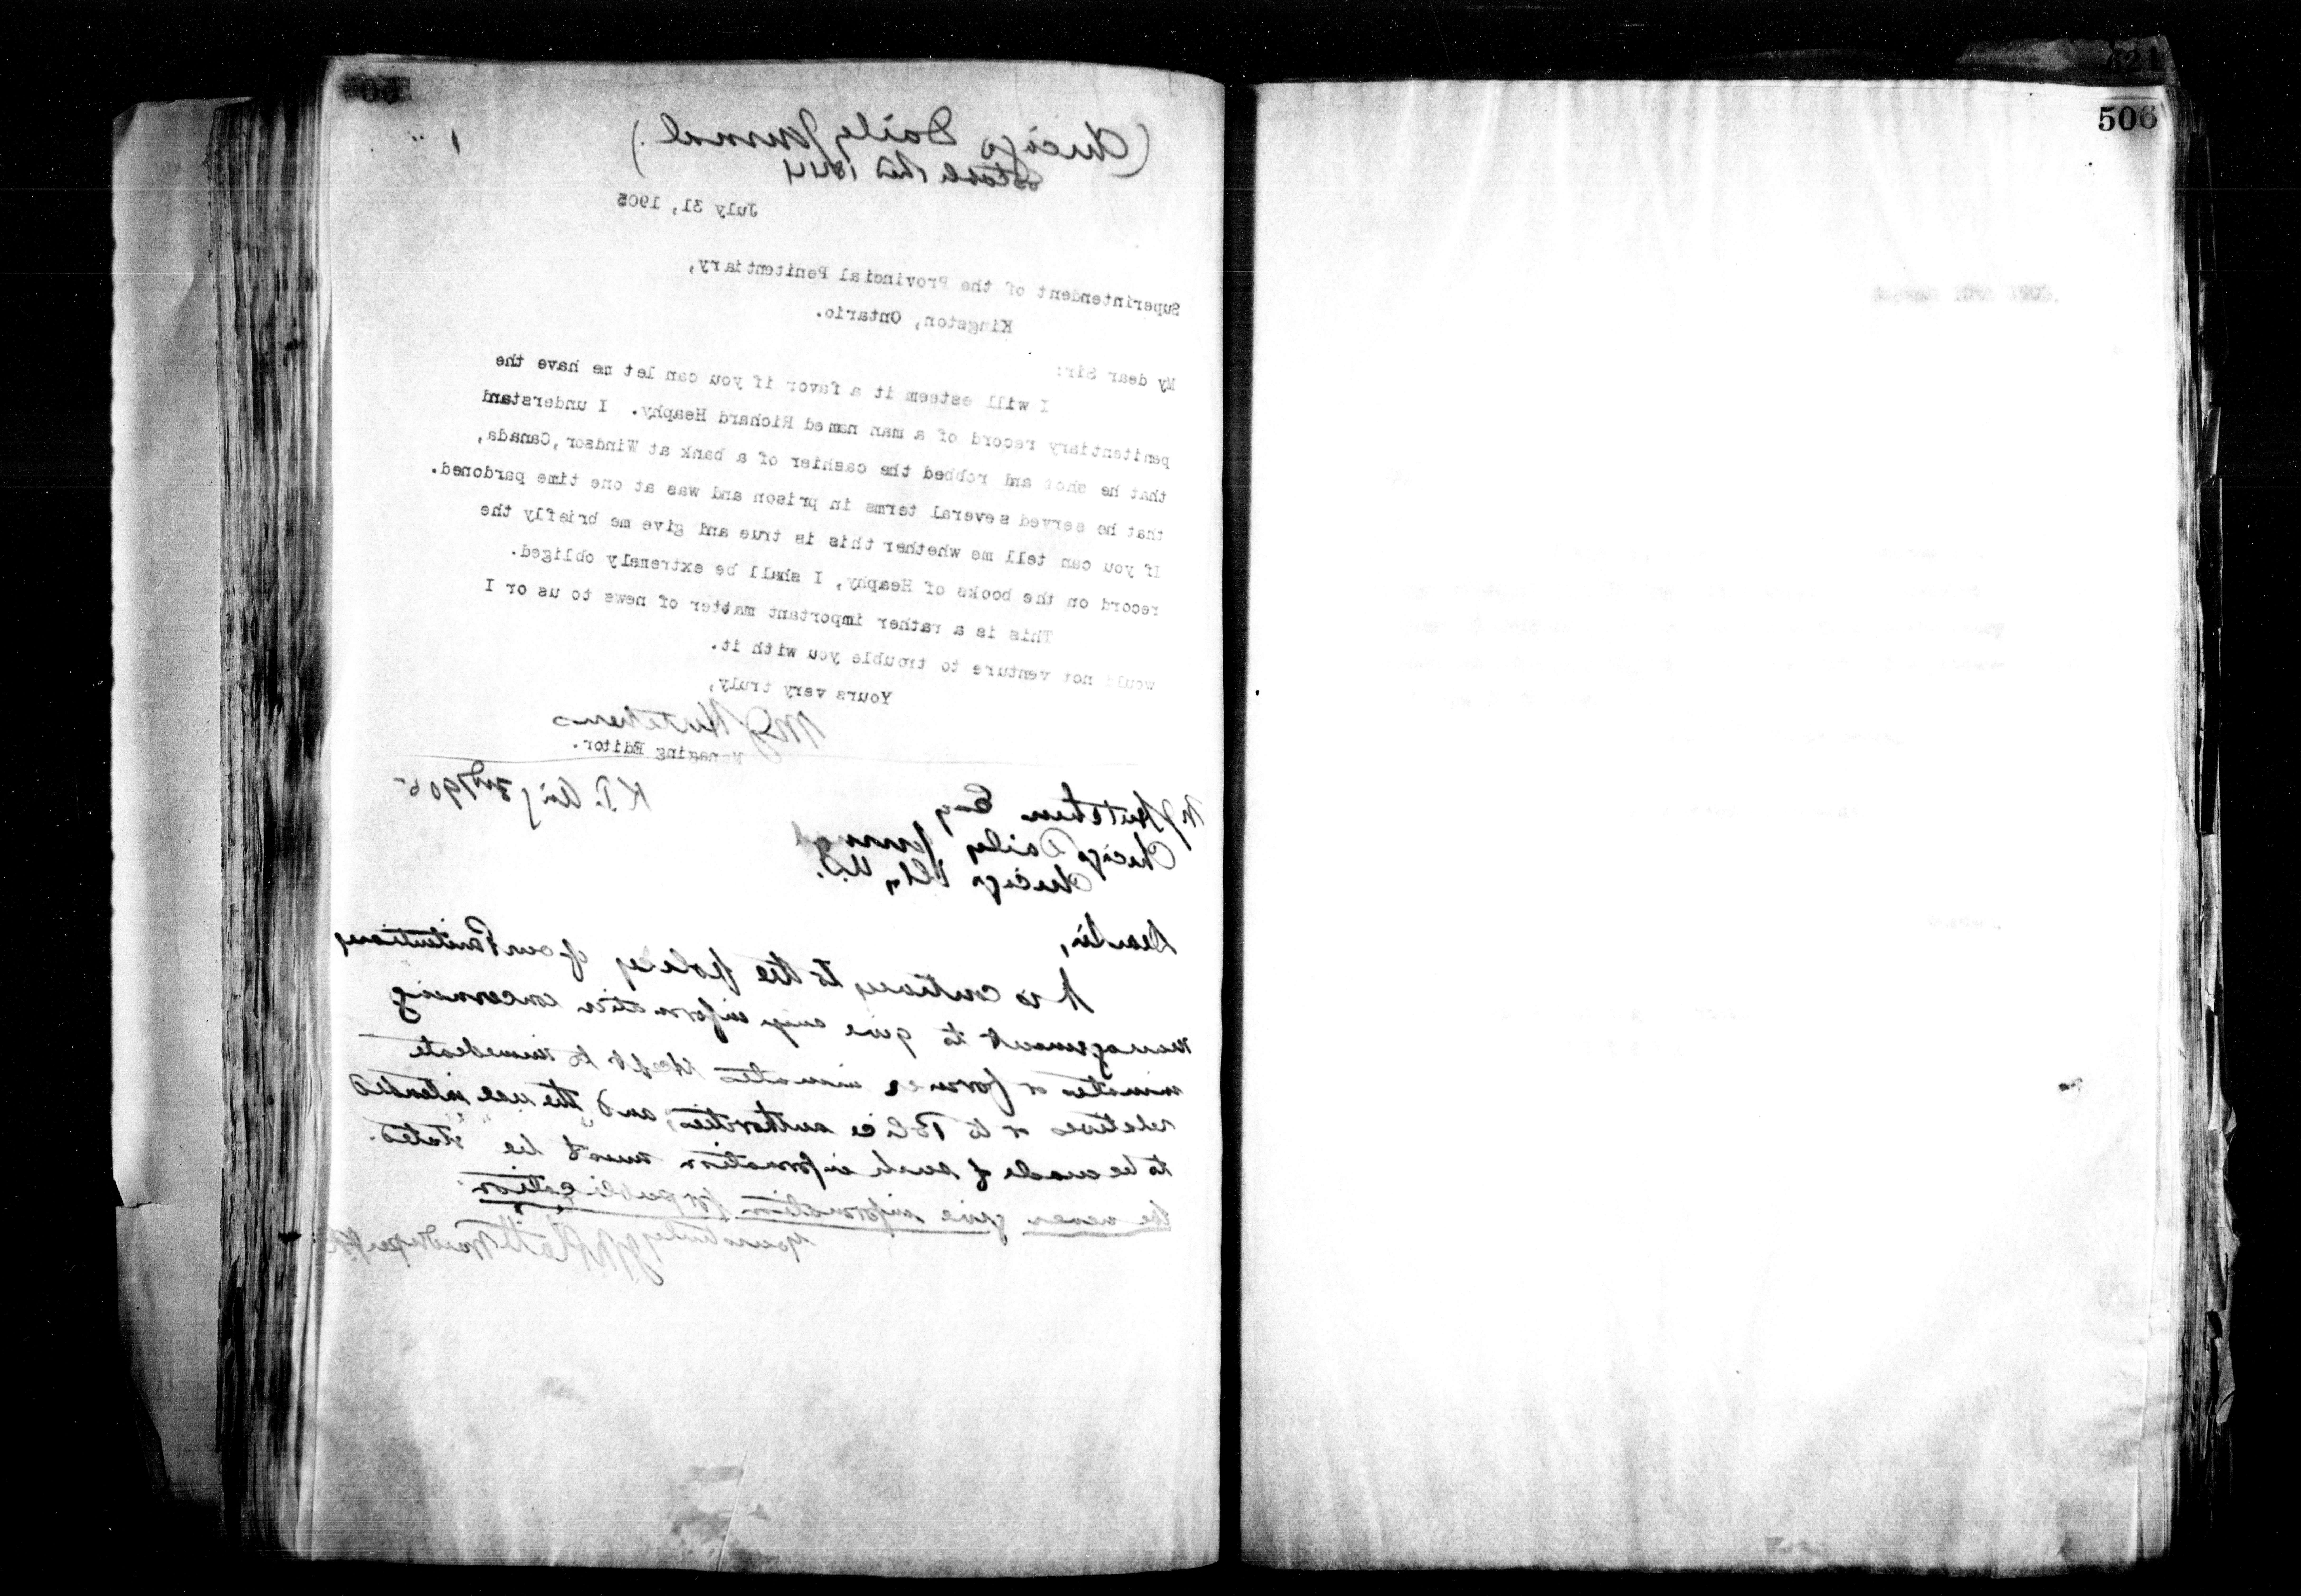 (Chicago Daily Journal.)
Established 1844
July 31, 1905
Superintendent of the Provincial Penitentiary,
Kingston, Ontario.
My dear Sir:
I will esteem it a favor if you can let me have the
penitentiary record of a man named Richard Heaphy. I understand
that he shot and robbed the cashier of a bank at Windsor, Canada,
that he served several terms in prison and was at one time pardoned.
If you can tell me whether this is true and give me briefly the
record on the books of Heaphy, I shall be extremely obliged.
This is a rather important matter of news to us or I
would not venture to trouble you with it.
Yours very truly,
M J Hutchens
Managing Editor.
K. P. Aug 3rd 1905
M J Hutchens Esq
Chicago Daily Journal
Chicago Ills, U.S.
Dear Sir,
It is contrary to the policy of our Penitentiary
management to give any information concerning
inmates or former inmates except to immediate
relatives or to Police authorities, and the use intended
to be made of such information must be stated.
We never give information for publication.
Yours truly J M Platt Warden
506